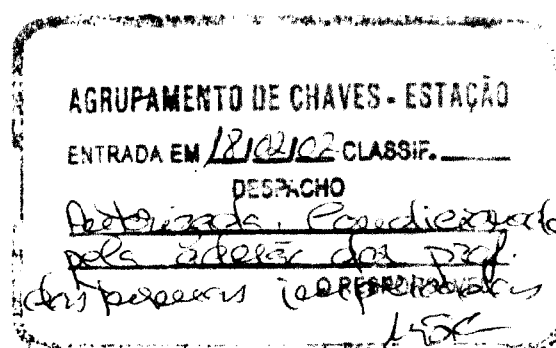 AGRUPAMENTO DE CHAVES - ESTAÇÃO
ENTRADA EM 18/02/02 CLASSIF.
DESPACHO
Autorizada. Condicionada
pela adesão dos prof.
das pessoas
O RESPONSÁVEL